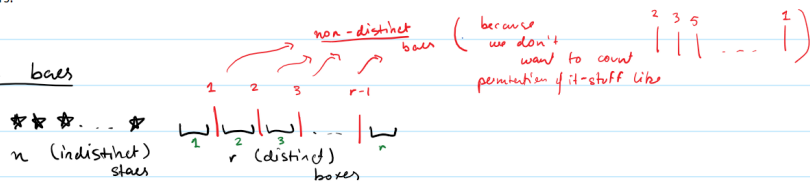 non-distinct
bars
( because
we don't
want to count
permutation of it - stuff like
2 3 5 .... 1 )
bars
1 2 3 r-1
.... 
n (indistinct)
stars
1 2 3 .... r
r (distinct)
boxes